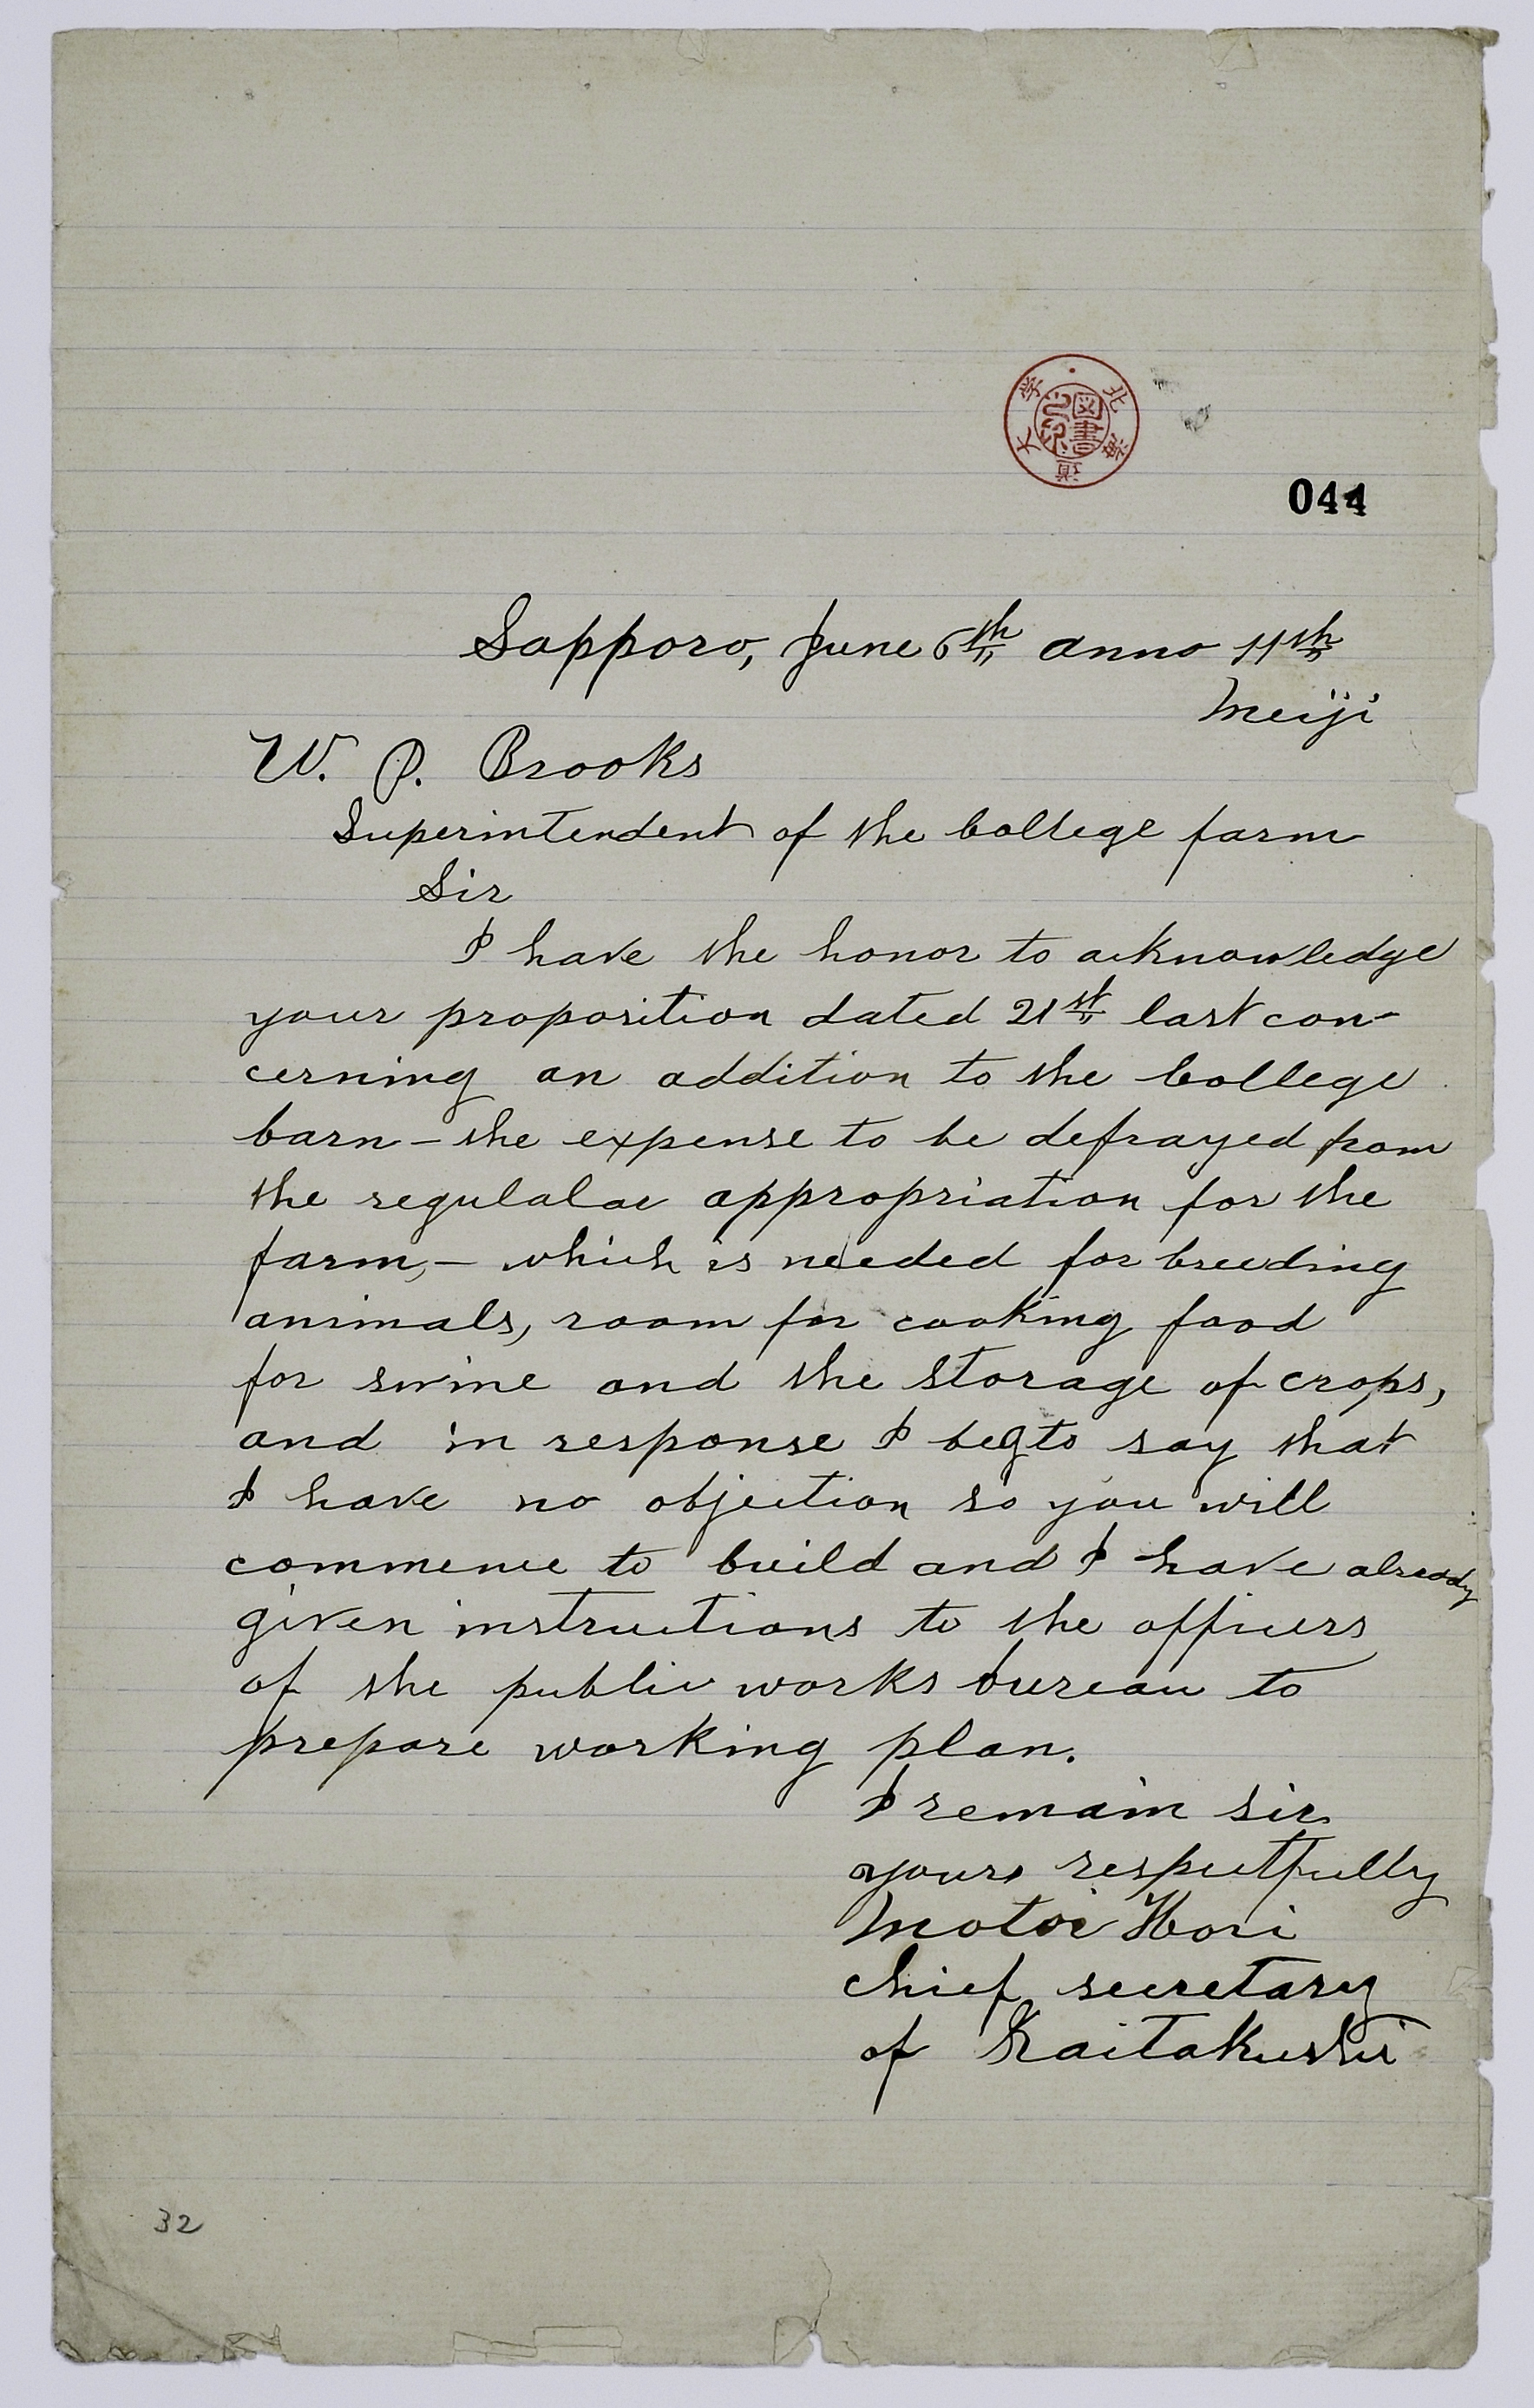 北海道大学
図書之印
044
Sapporo, June 6th anno 11th
Meiji
W. P. Brooks
Superintendent of the College farm
Sir
I have the honor to acknowledge
your proposition dated 21st last con-
cerning an addition to the College
barn - the expense to be defrayed from
the regulalar appropriation for the
farm, - which is needed for breeding
animals, room for cooking food
for swine and the storage of crops,
and in response I beg to say that
I have no objection so you will
commence to build and I have already
given instructions to the officers
of the public works bureau to
prepare working plan.
I remain sir
yours respectfully
Motoi Hori
chief secretary
of Kaitakushi
32